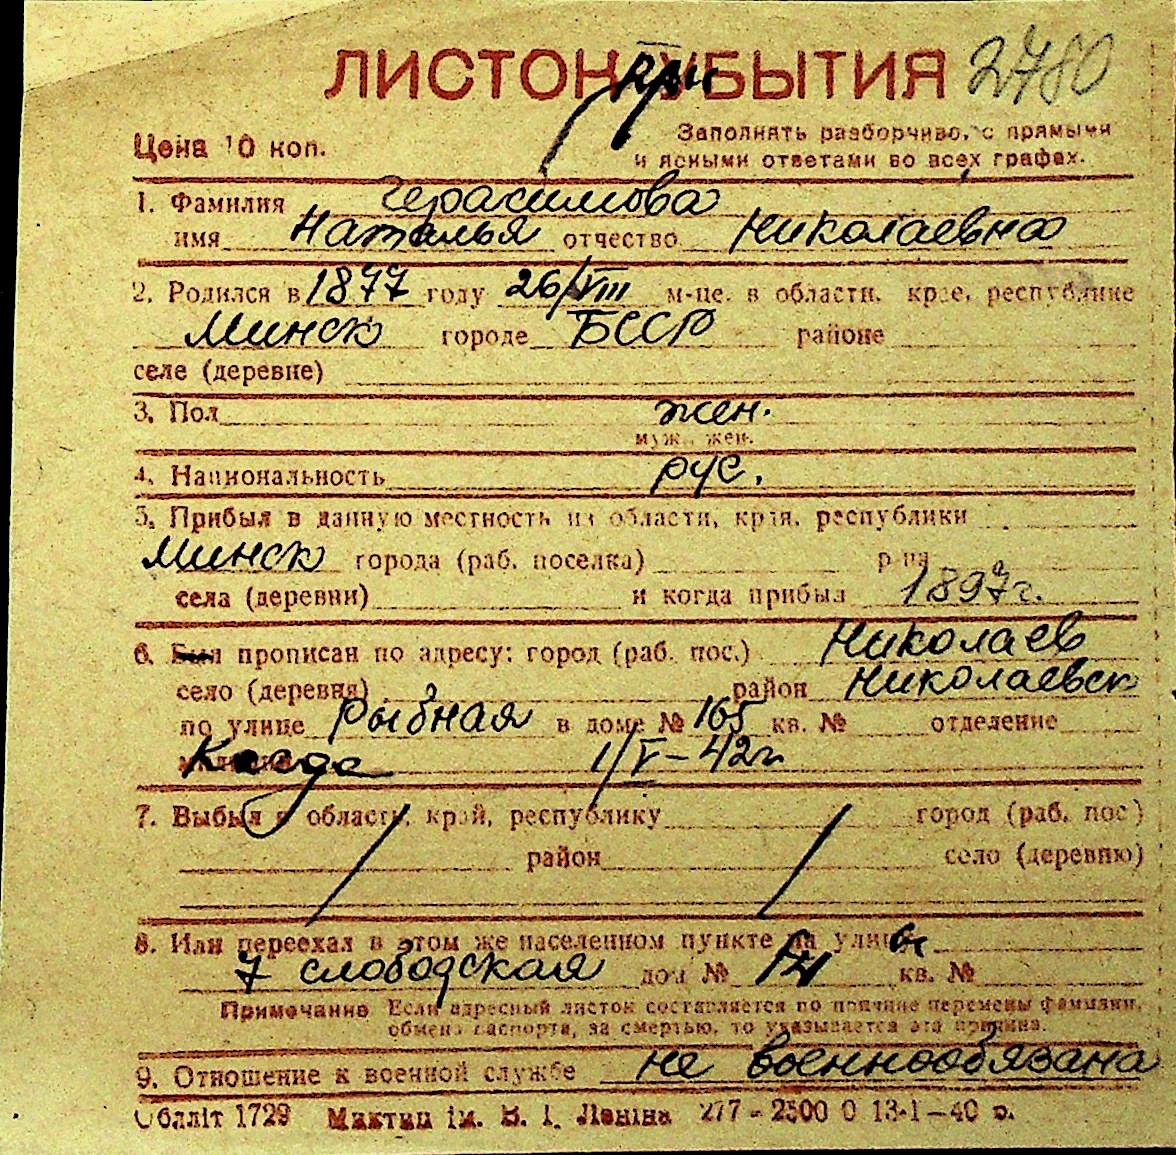 ЛИСТОК УБЫТИЯ 2780
При
Цена 10 коп.
Заполнять разборчиво, с прямыми
и ясными ответами во всех графах.
1. Фамилия Герасимова
имя Наталья отчество Николаевна
2. Родился в 1877 году 26/VIII м-це. в области, крае, республике
Минск городе БССР районе
селе (деревне)
3. Пол жен.
муж., жен.
4. Национальность рус.
5. Прибыл в данную местность из области, края, республики
Минск города (раб. поселка) р-на
села (деревни) и когда прибыл 1897 г.
6. Был прописан по адресу: город (раб. пос.) Николаев
село (деревня) район Николаевск
по улице Рыбная в доме № 165 кв. № отделение
милиции Когда 1/V-42г
7. Выбыл в область, край, республику город (раб. пос)
район село (деревню)
8. Или переехал в этом же населенном пункте на улицу
7 слободская дом № кв. №
Примечание Если адресный листок составляется по причине перемены фамилии,
обмена паспорта, за смертью, то указывается эта причина.
9. Отношение к военной службе не военнообязана
Облліт 1729 Миктип ім. В. І. Леніна 277-2500 0 13-1-40 р.